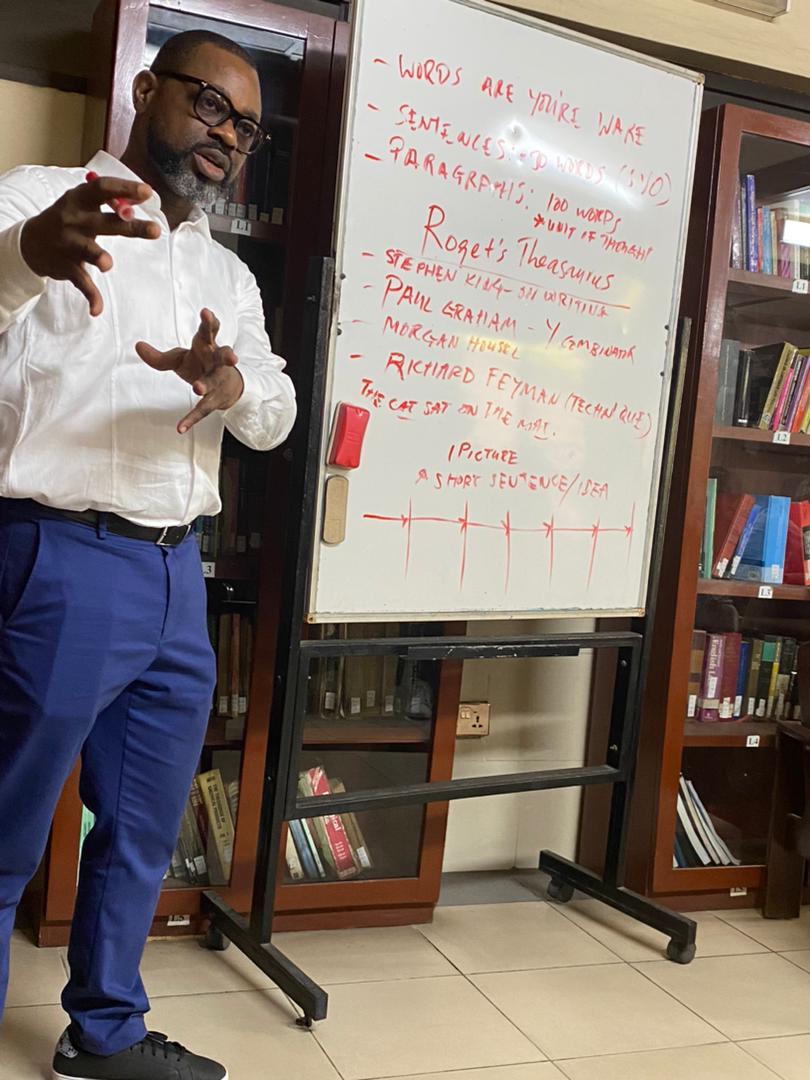 - WORDS ARE YOU'RE WAKE
- SENTENCES: WORDS
- PARAGRAPHS: 100 WORDS
* UNIT OF THOUGHT
Roget's Thesaurus
- STEPHEN KING - ON WRITING
- PAUL GRAHAM - Y COMBINATOR
- MORGAN HOUSEL
- RICHARD FEYMAN (TECHNIQUE)
THE CAT SAT ON THE MAT.
1 PICTURE
A SHORT SENTENCE/IDEA
L1
L1
L2
L3
L3
L4
English